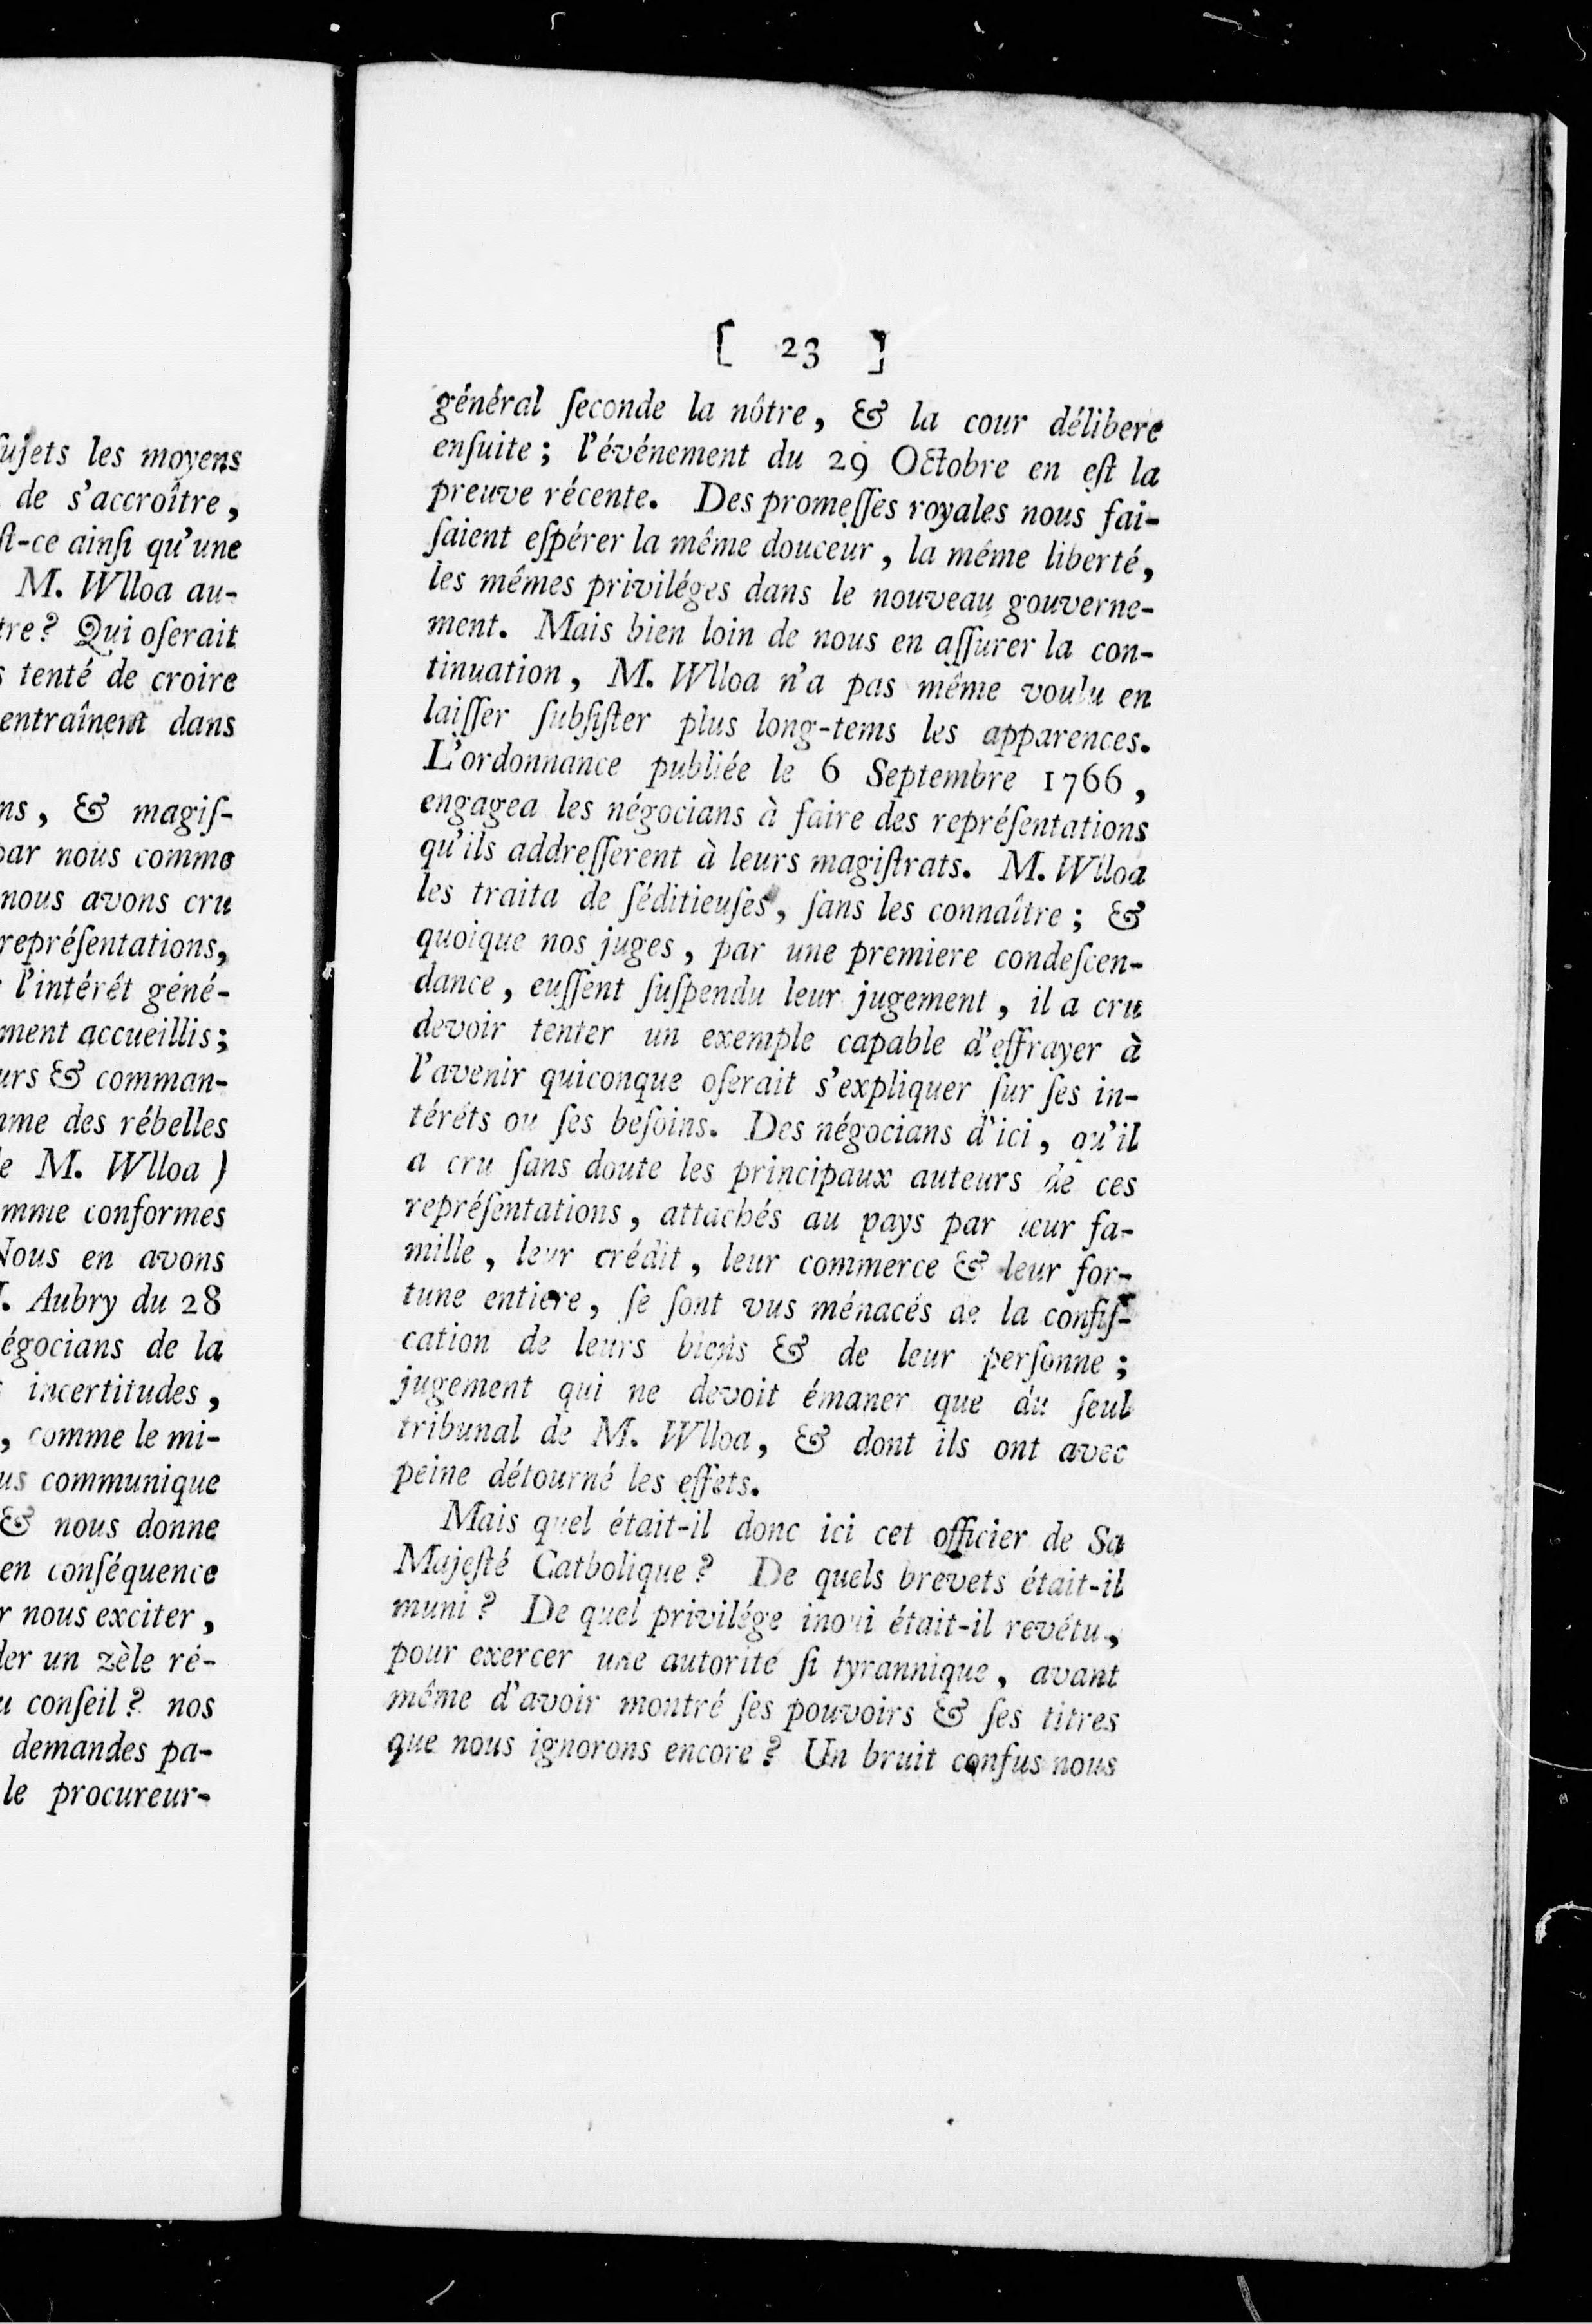 ſujets les moyens
de s'accroître,
ſt-ce ainſi qu'une
M. Wlloa au-
tre? Qui oſerait
tenté de croire
entraînent dans
ns, & magiſ-
par nous comme
nous avons cru
repréſentations,
l'intérêt géné-
ment accueillis;
urs & comman-
mme des rébelles
e M. Wlloa)
omme conformes
Nous en avons
M. Aubry du 28
égocians de la
incertitudes,
, comme le mi-
us communique
& nous donne
en conſéquence
r nous exciter,
der un zèle ré-
u conſeil? nos
demandes pa-
le procureur-
[ 23 ]
général ſeconde la nôtre, & la cour délibere
enſuite; l'événement du 29 Octobre en eſt la
preuve récente. Des promeſſes royales nous fai-
ſaient eſpérer la même douceur, la même liberté,
les mêmes priviléges dans le nouveau gouverne-
ment. Mais bien loin de nous en aſſurer la con-
tinuation, M. Wlloa n'a pas même voulu en
laiſſer ſubſiſter plus long-tems les apparences.
L'ordonnance publiée le 6 Septembre 1766,
engagea les négocians à faire des repréſentations
qu'ils addreſſerent à leurs magiſtrats. M. Wlloa
les traita de ſéditieuſes, ſans les connaître; &
quoique nos juges, par une premiere condeſcen-
dance, euſſent ſuſpendu leur jugement, il a cru
devoir tenter un exemple capable d'effrayer à
l'avenir quiconque oſerait s'expliquer ſur ſes in-
térêts ou ſes beſoins. Des négocians d'ici, qu'il
a cru ſans doute les principaux auteurs de ces
repréſentations, attachés au pays par leur fa-
mille, leur crédit, leur commerce & leur for-
tune entiere, ſe ſont vus ménacés de la confiſ-
cation de leurs biens & de leur perſonne;
jugement qui ne devoit émaner que du ſeul
tribunal de M. Wlloa, & dont ils ont avec
peine détourné les effets.
Mais quel était-il donc ici cet officier de Sa
Majeſté Catholique? De quels brevets était-il
muni? De quel privilége inoui était-il revêtu,
pour exercer une autorité ſi tyrannique, avant
même d'avoir montré ſes pouvoirs & ſes titres
que nous ignorons encore? Un bruit confus nous